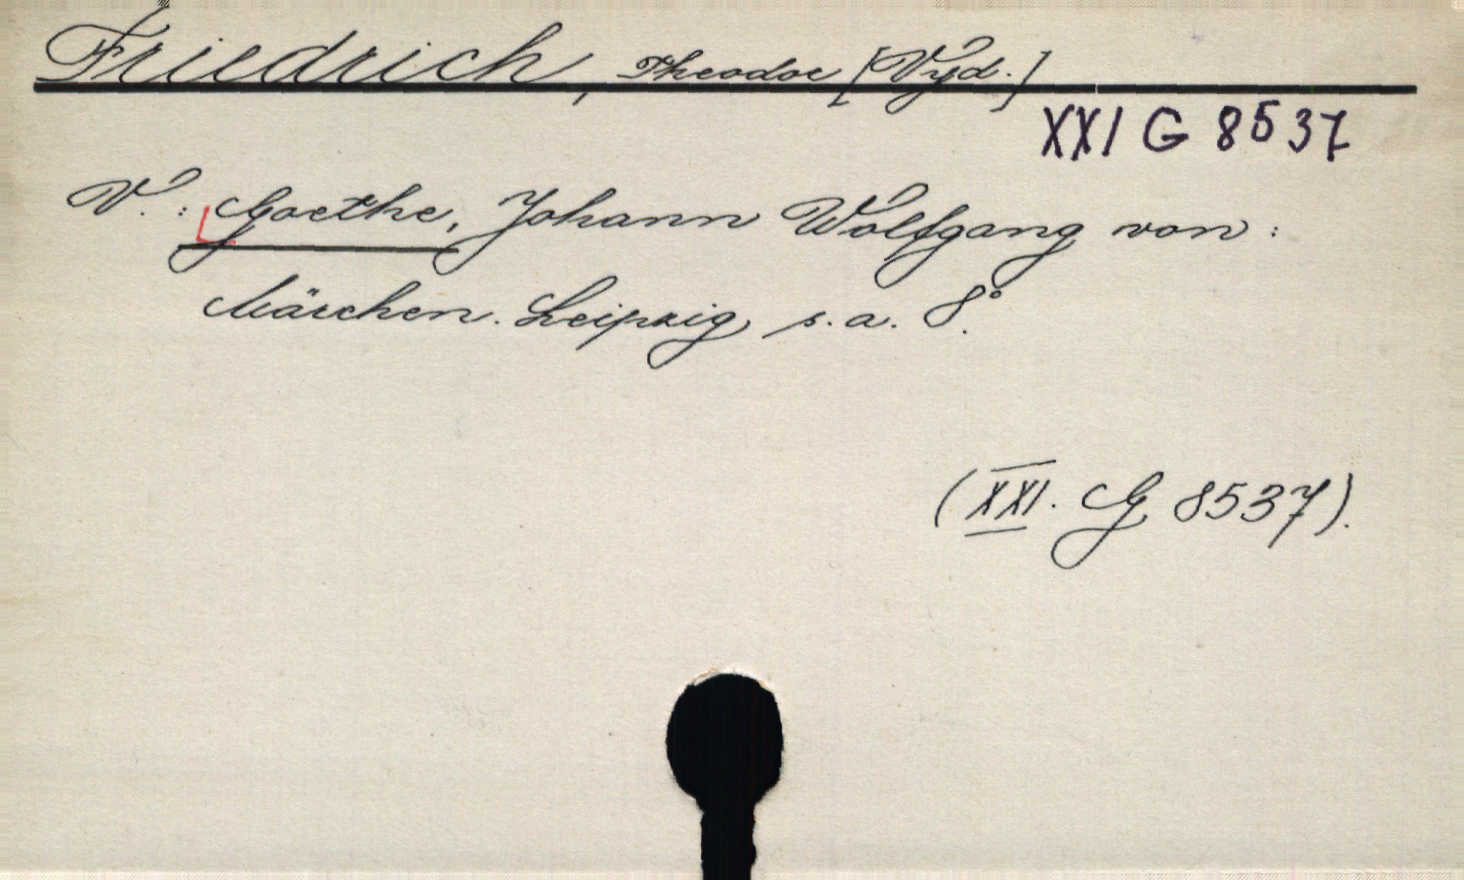 Friedrich, Theodor [Vyd.]
XXI G 8537
V.: Goethe, Johann Wolfgang von:
Märchen. Leipzig, s. a. 8°.
(XXI. G 8537).